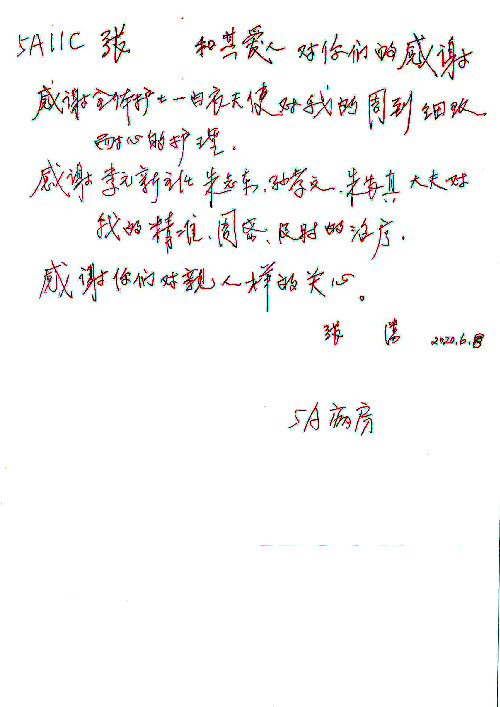 5A11C 张 和其爱人对你们的感谢
感谢全体护士—白衣天使对我的周到细致
耐心的护理.
感谢李元新主任 朱志东、孙学元、朱安真大夫对
我的精准、周密、及时的治疗.
感谢你们对亲人一样的关心。
张 2020.6.
5A病房